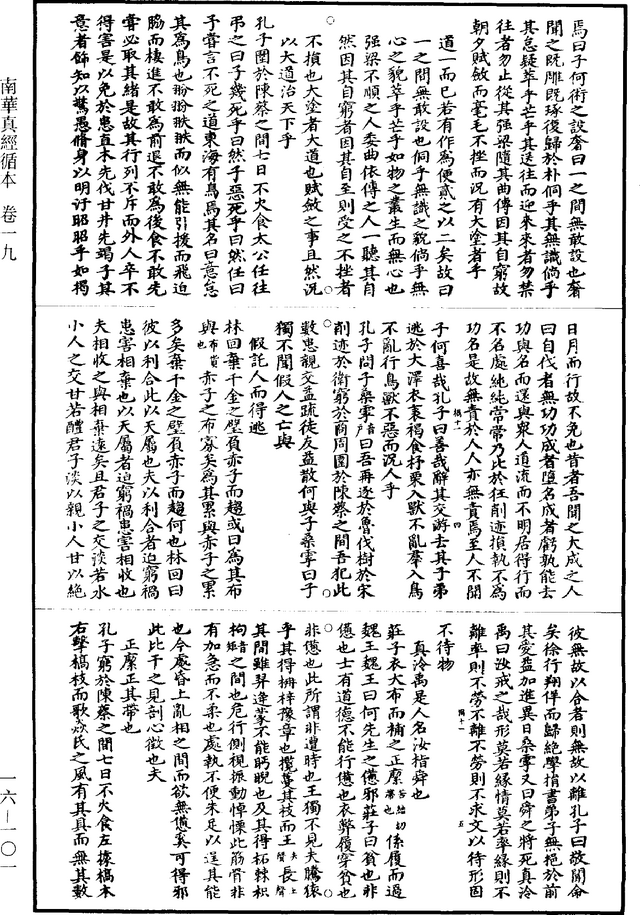 焉曰子何術之設奢曰一之間無敢設也奢
聞之既雕既琢復歸於朴侗乎其無識倘乎
其怠疑萃乎芒乎其送往而迎來來者勿禁
往者勿止從其强梁隨其曲傅因其自窮故
朝夕賦斂而毫毛不挫而況有大塗者乎
道一而已若有作爲便貳之以二矣故曰
一之間無敢設也侗乎無識之貌倘乎無
心之貌萃乎芒乎如物之叢生而無心也
强梁不順之人委曲依傅之人一聽其自
然因其自窮者因其自至則受之不挫者
不損也大塗者大道也賦斂之事且然況
以大道治天下乎
孔子圍於陳蔡之間七日不火食太公任往
弔之曰子幾死乎曰然子惡死乎曰然任曰
予嘗言不死之道東海有鳥焉其名曰意怠
其爲鳥也翂翂翐翐而似無能引援而飛迫
脇而棲進不敢爲前退不敢爲後食不敢先
嘗必取其緒是故其行列不斥而外人卒不
得害是以免於患直木先伐甘井先竭子其
意者飾知以驚愚脩身以明汙昭昭乎如揭
南華真經循本 卷一九
日月而行故不免也昔者吾聞之大成之人
曰自伐者無功功成者墮名成者虧孰能去
功與名而還與衆人道流而不明居得行而
不名處純純常常乃比於狂削迹捐執不爲
功名是故無責於人人亦無責焉至人不聞
子何喜哉孔子曰善哉辭其交游去其子弟
逃於大澤衣裘褐食杼栗入獸不亂羣入鳥
不亂行鳥獸不惡而況人乎
孔子問子桑雽曰吾再逐於魯伐樹於宋
削迹於衛窮於商周圍於陳蔡之間吾犯此
數患親交益疏徒友益散何與子桑雽曰子
獨不聞假人之亡與
假託人而得逃
林回棄千金之璧負赤子而趨或曰爲其布
與赤子之布寡矣爲其累與赤子之累
多矣棄千金之璧負赤子而趨何也林回曰
彼以利合此以天屬也夫以利合者迫窮禍
患害相棄也以天屬者迫窮禍患害相收也
夫相收之與相棄遠矣且君子之交淡若水
小人之交甘若醴君子淡以親小人甘以絕
彼無故以合者則無故以離孔子曰敬聞命
矣徐行翔佯而歸絕學捐書弟子無挹於前
其愛益加進異日桑雽又曰舜之將死真泠
禹曰汝戒之哉形莫若緣情莫若率緣則不
離率則不勞不離不勞則不求文以待形固
不待物
真泠禹是人名汝指舜也
莊子衣大布而補之正緳係履而過
魏王魏王曰何先生之憊邪莊子曰貧也非
憊也士有道德不能行憊也衣弊履穿貧也
非憊也此所謂非遭時也王獨不見夫騰猿
乎其得枏梓豫章也攬蔓其枝而王長
其間雖羿逢蒙不能眄睨也及其得柘棘枳
枸之間也危行側視振動悼慄此筋骨非
有加急而不柔也處執不便未足以逞其能
也今處昏上亂相之間而欲無憊奚可得邪
此比干之見剖心徵也夫
正緳正其帶也
孔子窮於陳蔡之間七日不火食左據槁木
右擊槁枝而歌猋氏之風有其具而無其數
一六—一〇一